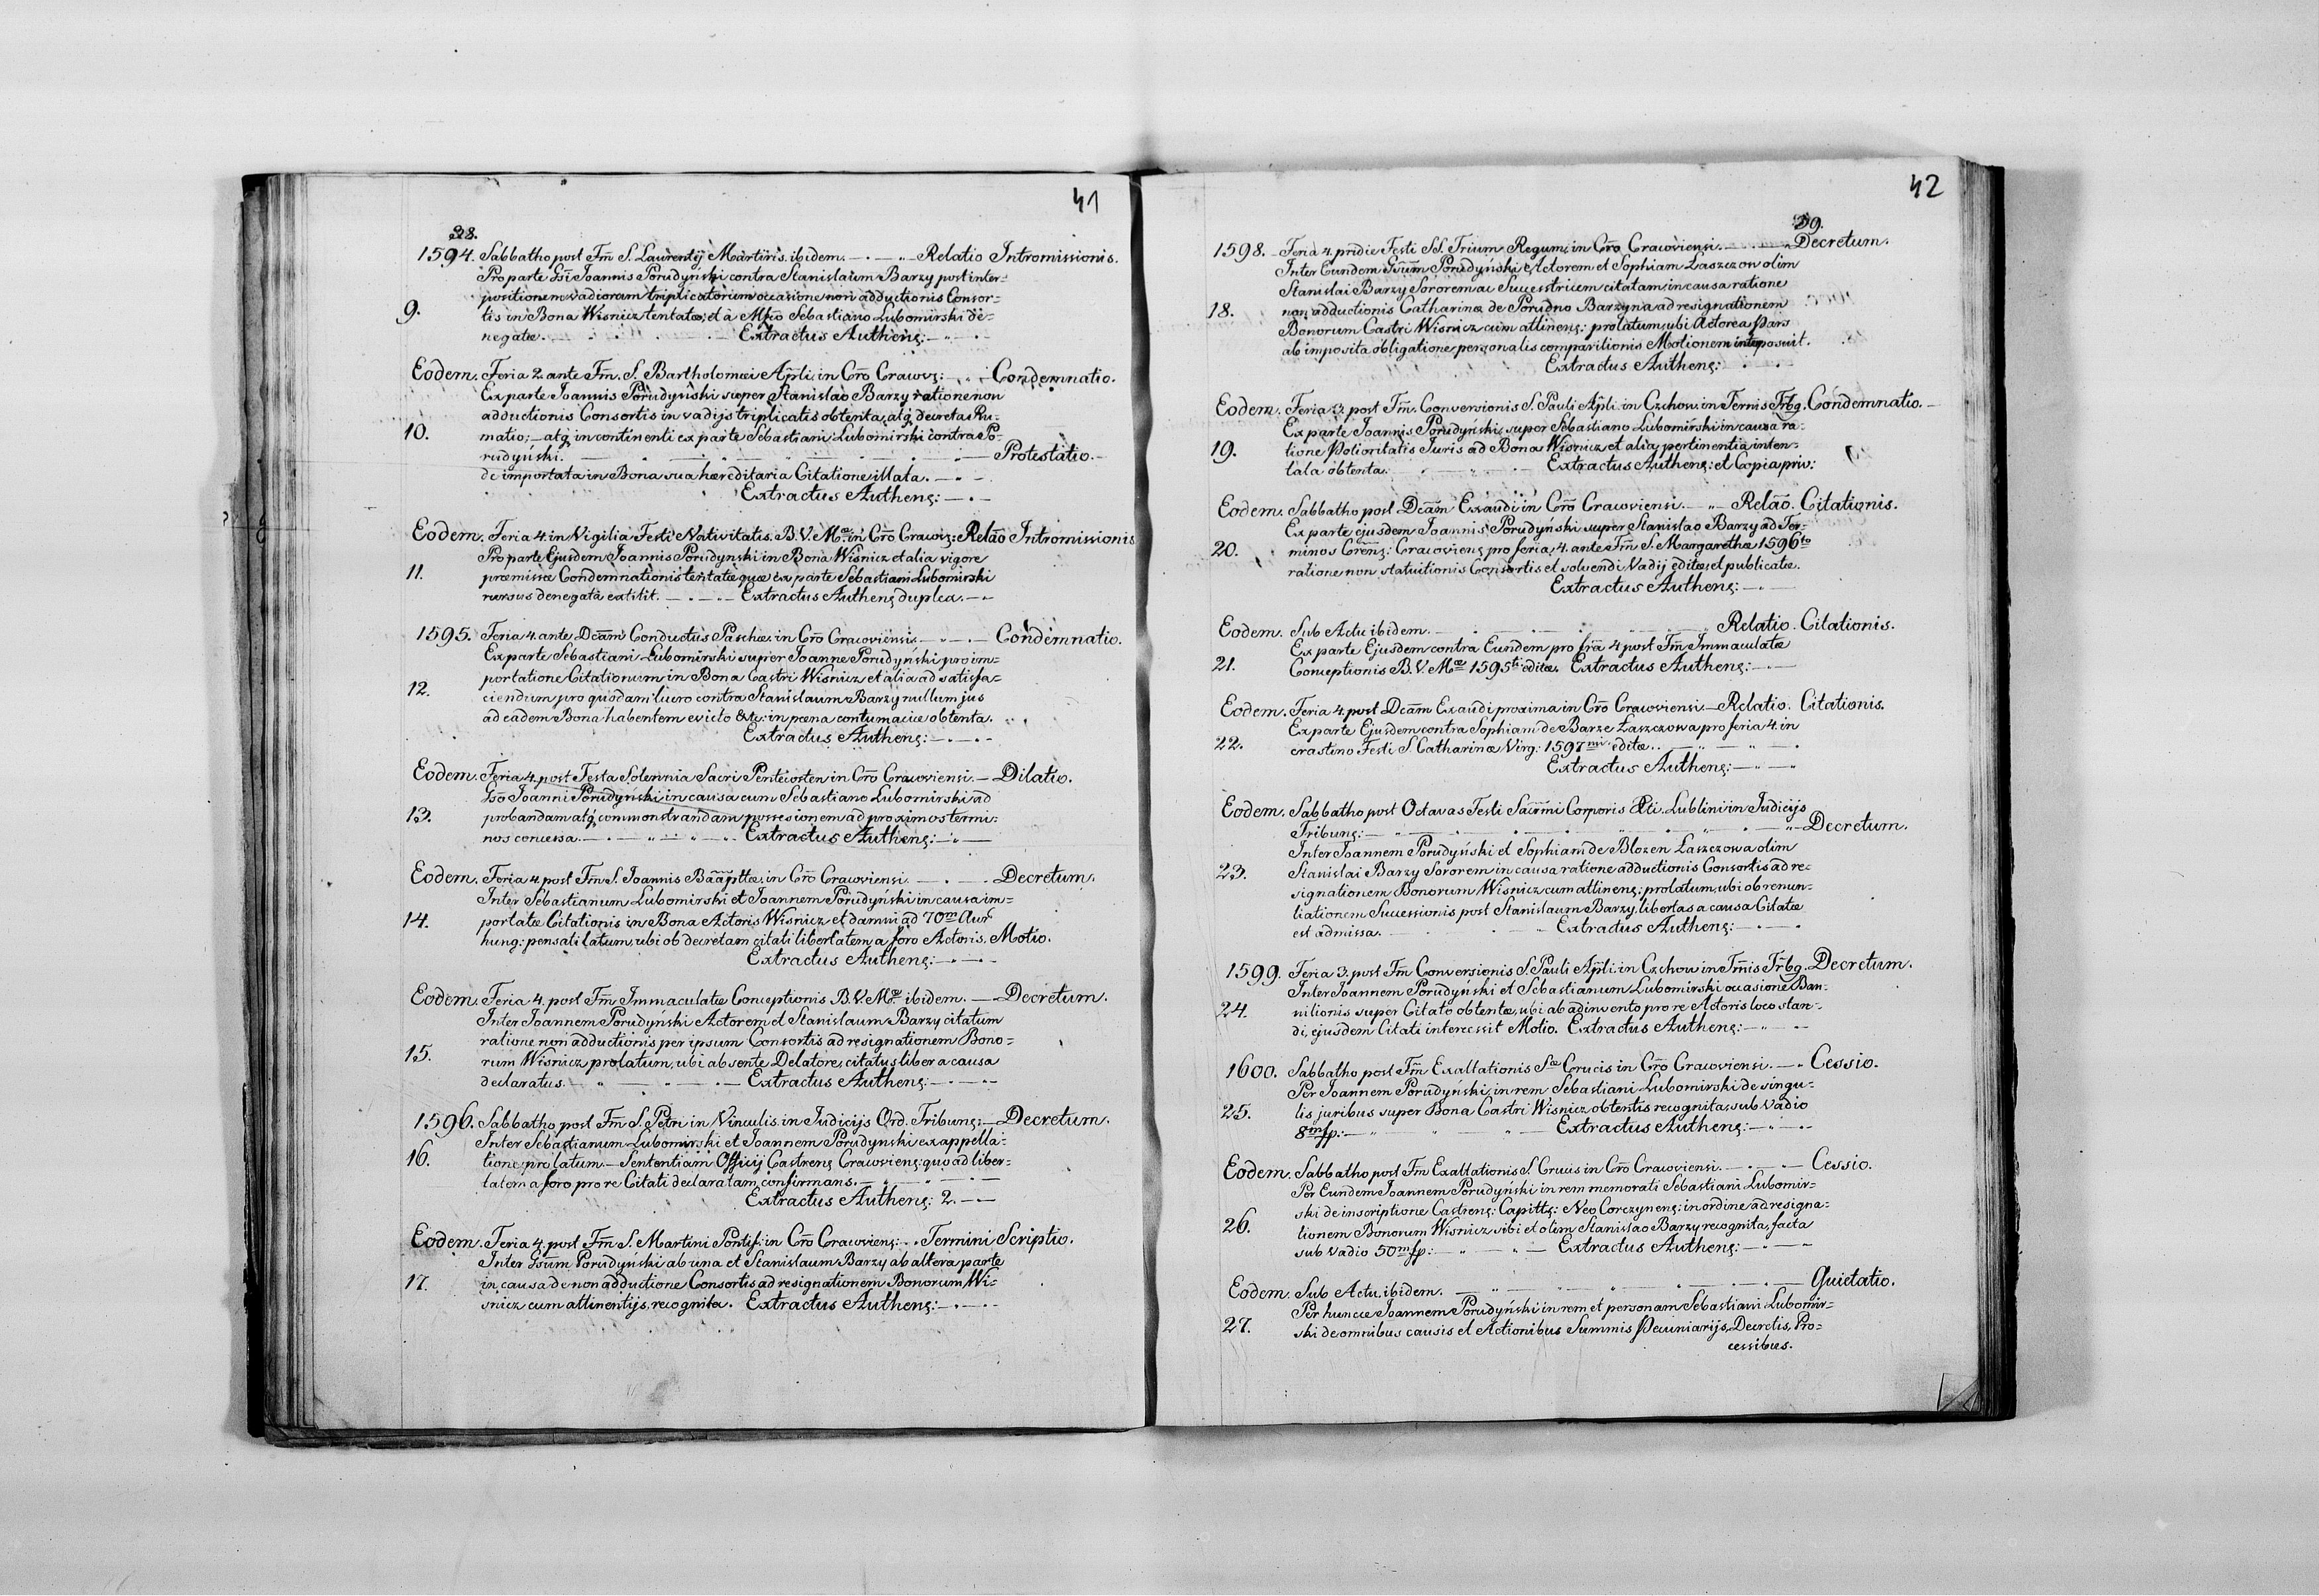 41
38.
1594. Sabbatho post Fm̃ S. Laurentij Martiris. ibidem. — Relatio Intromissionis.
Pro parte Gsi Joannis Porudynski contra Stanislaum Barzy post inter=
positionem vadiorum triplicatorum occasione non adductionis Consor=
9. tis in Bona Wisnicz tentatæ, et à Mfco Sebastiano Lubomirski de=
negatæ. — Extractus Autheng:
Eodem. Feria 2. ante Fm̃. S. Bartholomæi Ap̃li. in Cr̃o Cracovg: — Condemnatio.
Ex parte Joannis Porudynski super Stanislao Barzy ratione non
adductionis Consortis in vadijs triplicatis obtenta, atq̃ decreta Ru=
10. matio; — atq̃ in continenti ex parte Sebastiani Lubomirski contra Po=
rudyński. — Protestatio. —
de importata in Bona sua hæreditaria Citatione illata. —
Extractus Autheng: —
Eodem. Feria 4 in Vigilia Festi Nativitatis. B.V. Mæ. in Cr̃o Cracovg: Relão Intromissionis
Pro parte Ejusdem Joannis Porudynski in Bona Wisnicz et alia vigore
11. præmissæ Condemnationis tentatæ quæ ex parte Sebastiani Lubomirski
rursus denegata extitit. — Extractus Autheng duplex. —
1595. Feria 4. ante Dc̃am Conductus Paschæ. in Cr̃o Cracoviensi. — Condemnatio.
Ex parte Sebastiani Lubomirski super Joanne Porudyński pro im=
portatione Citationum in Bona Castri Wisnicz et alia ad satisfa=
12. ciendum pro quodam lucro contra Stanislaum Barzy nullum jus
ad eadem Bona habentem evicto &tc: in pœna contumaciæ obtenta.
Extractus Autheng: —
Eodem. Feria 4. post Festa Solennia Sacri Pentecosten in Cr̃o Cracoviensi. — Dilatio.
Gso Joanni Porudyński in causa cum Sebastiano Lubomirski ad
13. probandam atq̃ commonstrandam possesionem ad proximos termi=
nos concessa. — Extractus Autheng: —
Eodem. Feria 4. post Fm̃ S. Joannis Baãptæ. in Cr̃o Cracoviensi. — Decretum.
Inter Sebastianum Lubomirski et Joannem Porudyński in causa im=
14. portatæ Citationis in Bona Actoris Wisnicz et damni ad 70m Aur
hung: pensati latum, ubi ob decretam citati libertatem a foro Actoris. Motio.
Extractus Autheng: —
Eodem. Feria 4. post Fm̃ Immaculatæ Conceptionis B.V. Mæ ibidem. — Decretum.
Inter Joannem Porudyński Actorem et Stanislaum Barzy citatum
ratione non adductionis per ipsum Consortis ad resignationem Bono=
15. rum Wisnicz, prolatum, ubi absente Delatore, citatus liber a causa
declaratus. — Extractus Autheng: —
1596. Sabbatho post Fm̃ S. Petri in Vinculis. in Judicijs Ord. Tribung: — Decretum.
Inter Sebastianum Lubomirski et Joannem Porudynski ex appella=
16. tione prolatum. — Sententiam Officij Castreng Cracovieng: quo ad liber=
tatem a foro pro re Citati declaratam confirmans. —
Extractus Autheng: 2. —
Eodem. Feria 4. post Fm̃ S. Martini Pontif: in Cr̃o Cracovieng: Termini Scriptio.
Inter Gsum Porudyński ab una et Stanislaum Barzy ab altera parte
17. in causa de non adductione Consortis ad resignationem Bonorum Wi=
snicz cum attinentijs, recognita. Extractus Autheng: —
42
39.
1598. Feria 4. pridie Festi SS. Trium Regum, in Cr̃o Cracoviensi. — Decretum.
Inter Eundem Gsum Porudyński Actorem et Sophiam Łaszczow olim
Stanislai Barzy Sororem ac Successtricem citatam, in causa ratione
18. non adductionis Catharinæ de Porudno Barzyna ad resignationem
Bonorum Castri Wisnicz cum attineng: prolatum, ubi Actorea Pars
ab imposita obligatione personalis comparitionis Motionem interposuit.
Extractus Autheng:
Eodem. Feria 3. post Fm̃. Conversionis S. Pauli Ap̃li. in Czchow in Termis Trbg. Condemnatio. —
Ex parte Joannis Porudynski, super Sebastiano Lubomirski in causa ra=
19. tione Potioritatis Juris ad Bona Wisnicz et alia, pertinentia inten=
tata obtenta. Extractus Autheng: et Copia priv:
Eodem. Sabbatho post Dc̃am Exaudi in Cr̃o Cracoviensi. — Relão. Citationis.
Ex parte ejusdem Joannis Porudyński super Stanislao Barzy ad Ter=
20. minos Cr̃eng: Cracovieng pro feria 4. ante Fm̃ S. Margarethæ 1596to
ratione non statuitionis Consortis et solvendi Vadij editæ, et publicatæ.
Extractus Autheng: —
Eodem. Sub Actu ibidem. — Relatio. Citationis.
Ex parte Ejusdem contra Eundem pro fr̃a 4 post Fm̃ Immaculatæ
21. Conceptionis B.V. Mæ 1595ti editæ. Extractus Autheng: —
Eodem. Feria 4. post Dc̃am Exaudi proxima in Cr̃o Cracoviensi — Relatio. Citationis.
Ex parte Ejusdem contra Sophiam de Barze Łaszczowa pro feria 4. in
22. crastino Festi S. Catharinæ Virg: 1597mi editæ. —
Extractus Autheng: —
Eodem. Sabbatho post Octavas Festi Sacr̃mi Corporis Xti. Lublini in Judicijs
Tribung: — Decretum.
Inter Joannem Porudyński et Sophiam de Blozen Łaszczowa olim
23. Stanislai Barzy Sororem in causa ratione adductionis Consortis ad re=
signationem Bonorum Wisnicz cum attineng: prolatum, ubi ob renun=
tiationem Successionis post Stanislaum Barzy, libertas a causa Citatæ
est admissa. — Extractus Autheng: —
1599. Feria 3. post Fm̃ Conversionis S. Pauli Ap̃li. in Czchow in Tm̃is Tr̃bg. Decretum.
Inter Joannem Porudyński et Sebastianum Lubomirski occasione Ban=
24. nitionis super Citato obtentæ, ubi ab adinvento pro re Actoris loco stan=
di, ejusdem Citati intercessit Motio. Extractus Autheng: —
1600. Sabbatho post Fm̃ Exaltationis Sæ Crucis in Cr̃o Cracoviensi. — Cessio.
Per Joannem Porudyński, in rem Sebastiani Lubomirski de singu=
25. lis juribus super Bona Castri Wisnicz obtentis recognita, sub Vadio
8m fp: — Extractus Autheng: —
Eodem. Sabbatho post Fm̃ Exaltationis S. Crucis in Cr̃o Cracoviensi. — Cessio.
Per Eundem Joannem Porudyński in rem memorati Sebastiani Lubomir=
ski de inscriptione Castreng: Capittg: Neo Corczyneng: in ordine ad resigna=
26. tionem Bonorum Wisnicz sibi et olim Stanislao Barzy recognita, facta
sub vadio 50m fp: — Extractus Autheng: —
Eodem. Sub Actu. ibidem. — Quietatio.
Per huncce Joannem Porudyński in rem et personam Sebastiani Lubomir=
27. ski de omnibus causis et Actionibus Summis Pecuniarijs, Decretis, Pro=
cessibus.